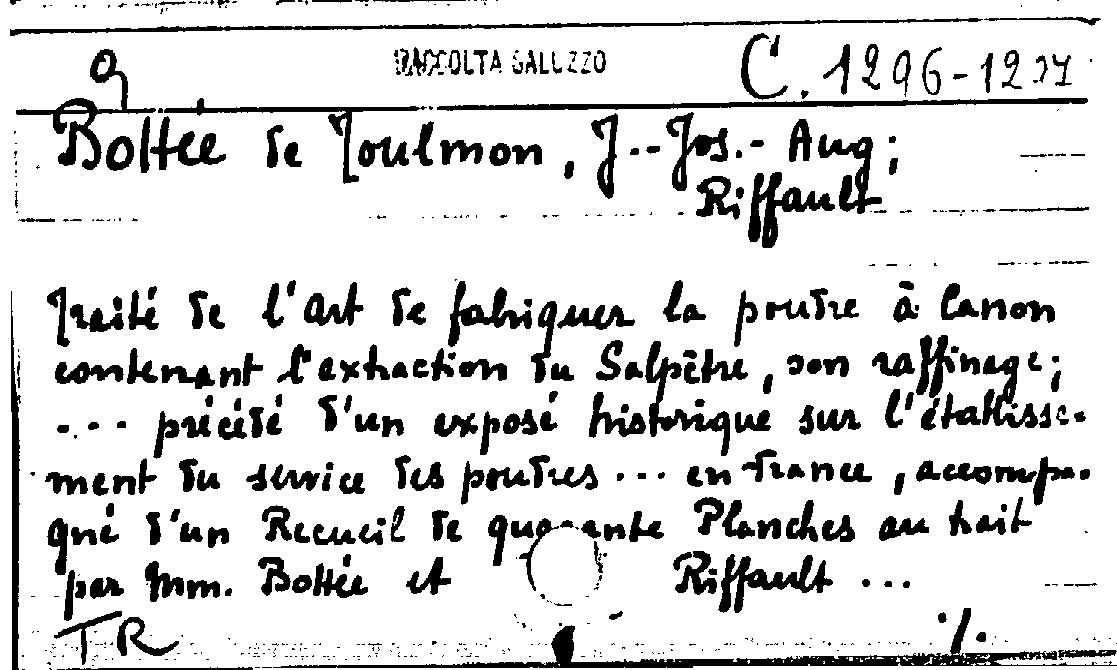 9 RACCOLTA GALLUZZO C. 1296-1297
Bottée de Toulmon, J.-Jos.-Aug;
Riffault
Traité de l'art de fabriquer la poudre à canon
contenant l'extraction du Salpêtre, son raffinage;
... précédé d'un exposé historique sur l'établisse-
ment du service des poudres ... en France, accompa-
gné d'un Recueil de quarante Planches au trait
par Mm. Bottée et Riffault ...
TR ./.